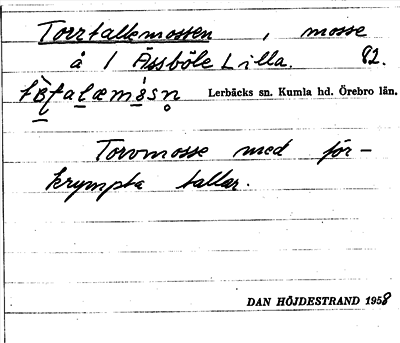 Torrtallemossen, mosse
å 1 Åssböle Lilla. 82.
Lerbäcks sn. Kumla hd. Örebro län.
Torvmosse med för-
krympta tallar.
DAN HÖJDESTRAND 1958